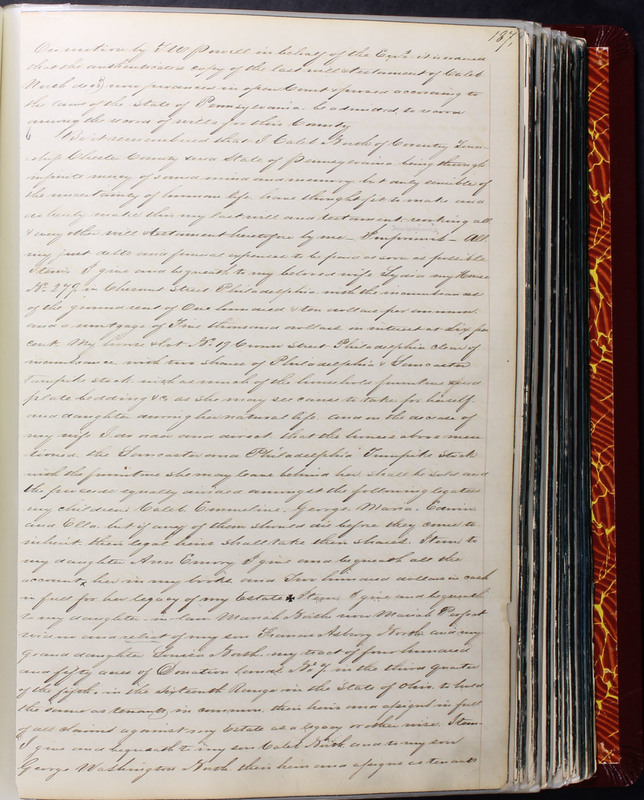 137,
On motion by F W Powell in behalf of the Exrs. it is ordered
that the authenticated copy of the last will & testament of Caleb
North decd. now produced in open Court & proved according to
the laws of the State of Pennsylvania be admitted to record
among the record of wills, for this County
Be it remembered that I Caleb North of Coventry Town-
ship Chester County and State of Pennsylvania being through
infinite mercy of sound mind and memory but duly sensible of
the uncertainty of human life have thought fit to make and
do hereby make this my last will and testament revoking all
& every other will & testament heretofore by me — Imprimis — All
my just debts and funeral expenses to be paid as soon as possible
Item I give and bequeath to my beloved wife Lydia my House
No. 279 in Chesnut Street Philadelphia with the incumbrances
of the ground rent of One hundred & ten dollars per annum
and a mortgage of Five thousand dollars in interest at Six per
cent My house & lot No. 19 Crown Street Philadelphia clear of
incumbrance with two shares of Philadelphia & Lancaster
turnpike stock with as much of the household furniture
plate bedding &c as she may see cause to take for herself
and daughter during her natural life and on the decease of
my wife I do order and direct that the houses above men
tioned the Lancaster and Philadelphia Turnpike Stock
with the furniture she may leave behind her shall be sold and
the proceeds equally divided amongst the following legatees
my children Caleb Emmeline, George, Maria, Edwin
and Ella but if any of them should die before they come to
inherit their legal heirs shall take their shares Item to
my daughter Ann Emory I give and bequeath all the
accounts her in my books and Two hundred dollars in cash
in full for her legacy of my Estate Item I give and bequeath
to my daughter in law Mariah North now Mariah
widow and relict of my son Thomas Asbury North and my
grand daughter Louisa North my tract of four hundred
and fifty acres of Donation Land No. 7 in the third quarter
of the fifth in the Sixteenth Range in the State of Ohio to hold
the same as tenants in common their heirs and assigns in full
of all claims against my Estate as a legacy or other wise. Item
I give and bequeath to my son Caleb North and to my son
George Washington North their heirs and assigns as tenants